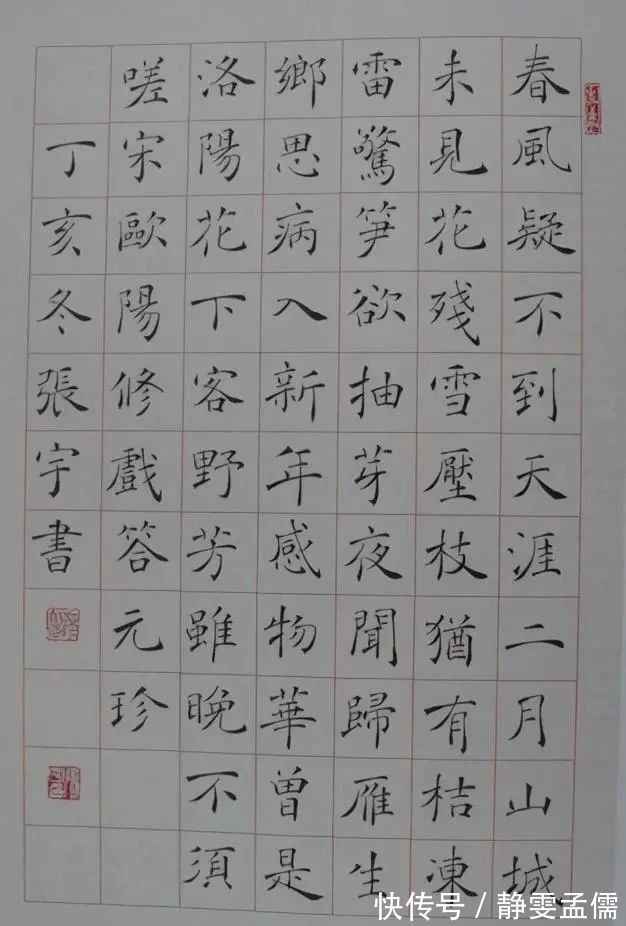 春風疑不到天涯二月山城
未見花殘雪壓枝猶有桔凍
雷驚笋欲抽芽夜聞歸雁生
鄉思病入新年感物華曾是
洛陽花下客野芳雖晚不須
嗟宋歐陽修戲答元珍
丁亥冬張宇書
快传号 / 静雯孟儒